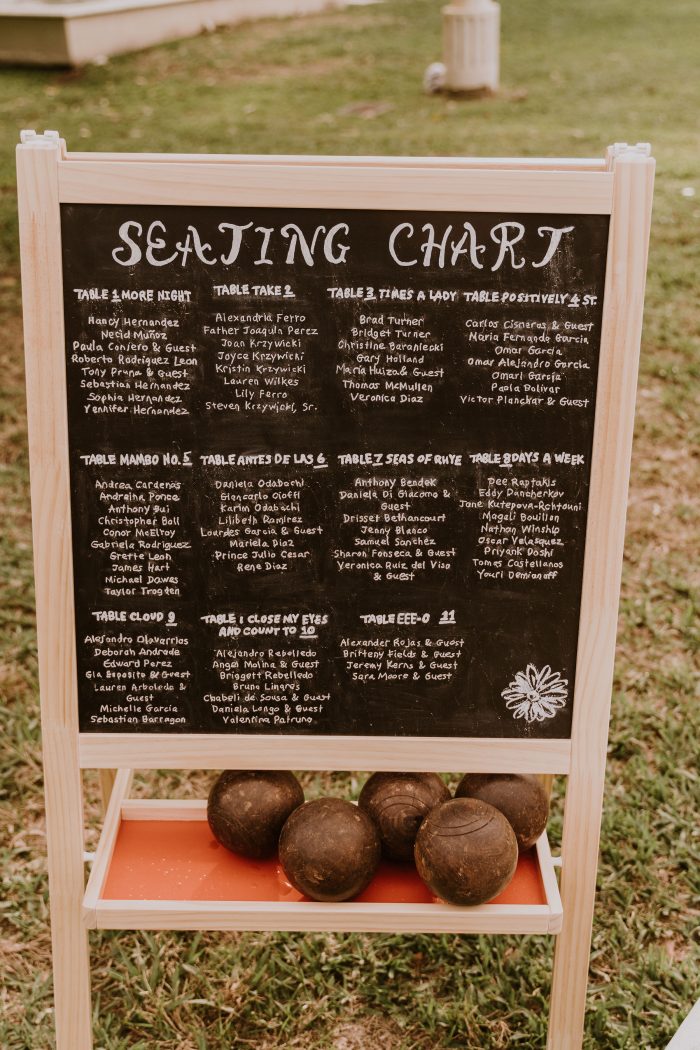 SEATING CHART
TABLE 1 MORE NIGHT
Nancy Hernandez
Necid Muñoz
Paula Conjero & Guest
Roberto Rodriguez Leon
Tony & Guest
Sebastian Hernandez
Sophia Hernandez
Yennifer Hernandez
TABLE TAKE 2
Alexandria Ferro
Father Joaquin Perez
Joan Krzywicki
Joyce Krzywicki
Kristin Krzywicki
Lauren Wilkes
Lily Ferro
Steven Krzywicki, Sr.
TABLE 3 TIMES A LADY
Brad Turner
Bridget Turner
Christine Baraniecki
Gary Holland
Maria Huiza & Guest
Thomas McMullen
Veronica Diaz
TABLE POSITIVELY 4 ST.
Carlos Cisneros & Guest
Maria Fernanda Garcia
Omar Garcia
Omar Alejandro Garcia
Omari Garcia
Paola Bolivar
Victor Planchar & Guest
TABLE MAMBO NO. 5
Andrea Cardenas
Andreina Ponce
Anthony Gui
Christopher Ball
Conor McElroy
Gabriela Rodriguez
Grette Leon
James Hart
Michael Dawes
Taylor Trogden
TABLE ANTES DE LAS 6
Daniela Odabachi
Giancarlo Cioffi
Karim Odabachi
Lilibeth Ramirez
Lourdes Garcia & Guest
Mariela Diaz
Prince Julio Cesar
Rene Diaz
TABLE 7 SEAS OF RHYE
Anthony Bendek
Daniela Di Giacomo &
Guest
Drisset Bethancourt
Jenny Blanco
Samuel Sanchez
Sharon Fonseca & Guest
Veronica Ruiz del Viso
& Guest
TABLE 8 DAYS A WEEK
Dee Raptakis
Eddy Dancherkov
Jane Kutepova-Rchtouni
Magali Bouillon
Nathan Winship
Oscar Velasquez
Priyank Doshi
Tomas Castellanos
Youri Demianoff
TABLE CLOUD 9
Alejandro Olavarrias
Deborah Andrade
Edward Perez
Gia Esposito & Guest
Lauren Arboleda &
Guest
Michelle Garcia
Sebastian Barragan
TABLE I CLOSE MY EYES
AND COUNT TO 10
Alejandro Rebelledo
Angel Molina & Guest
Briggett Rebelledo
Bruno Linares
Chabeli de Sousa & Guest
Daniela Longo & Guest
Valentina Patruno
TABLE EEE-O 11
Alexander Rojas & Guest
Britteny Fields & Guest
Jeremy Kerns & Guest
Sara Moore & Guest